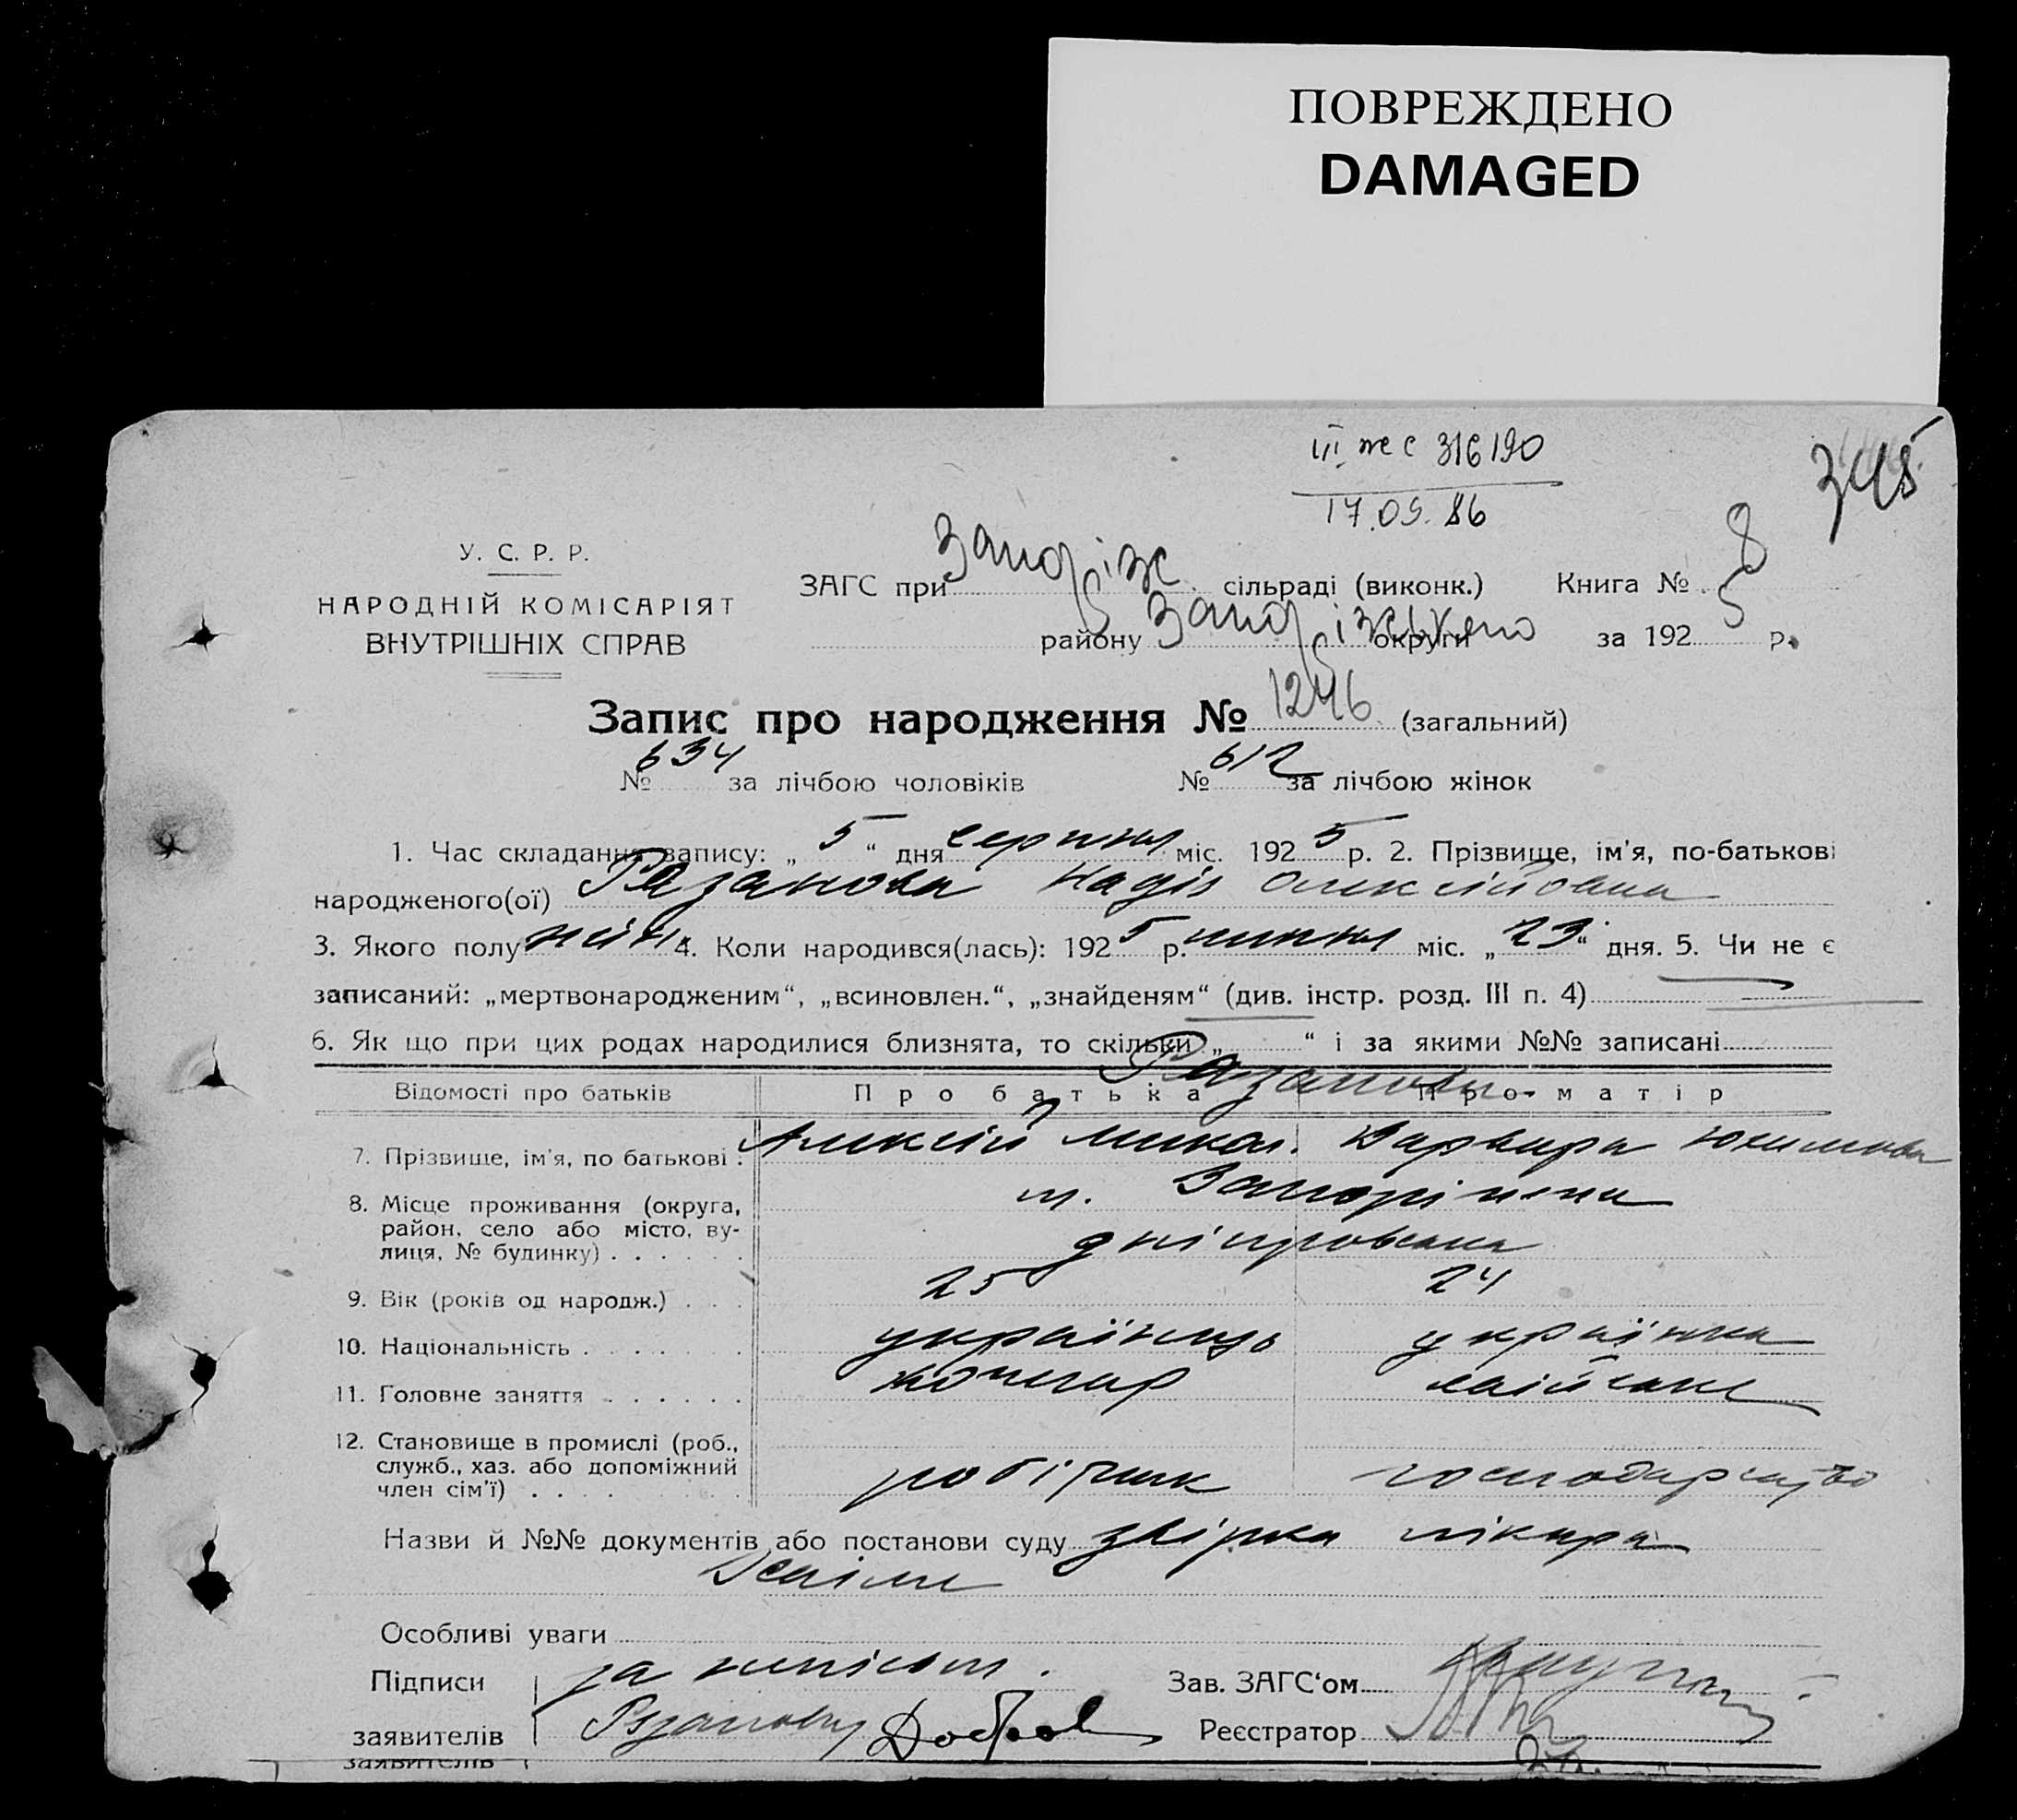 ПОВРЕЖДЕНО
DAMAGED
III же с 316190
17.09.86
345
У. С. Р. Р.
НАРОДНІЙ КОМІСАРІЯТ
ВНУТРІШНІХ СПРАВ
ЗАГС при Запоріж сільраді (виконк.) Книга № 8
району Запоріжського округи за 1925 р.
Запис про народження № 1246 (загальний)
№ 634 за лічбою чоловіків № 612 за лічбою жінок
1. Час складання запису: „ 5 “ дня серпня міс. 1925 р. 2. Прізвище, ім'я, по-батькові
народженого(ої) Рязанова Надія Олексійовна
3. Якого полу жін. 4. Коли народився(лась): 1925 р. липня міс. „ 23 “ дня. 5. Чи не є
записаний: „мертвонародженим“, „всиновлен.“, „знайденям“ (див. інстр. розд. III п. 4)
6. Як що при цих родах народилися близнята, то скільки „ “ і за якими №№ записані
Рязанови
Відомості про батьків Про батька Про матір
7. Прізвище, ім'я, по батькові : Алексій Микол. Варвара Юхимова
8. Місце проживання (округа, м. Запоріжжя
район, село або місто, ву- Дніпровська
лиця, № будинку) . . . . . .
9. Вік (років од народж.) . . . 25 24
10. Національність . . . . . . . українець українка
11. Головне заняття . . . . . . кочегар хатйське
12. Становище в промислі (роб.,
служб., хаз. або допоміжний робітник господарство
член сім'ї) . . . . . . . .
Назви й №№ документів або постанови суду звірка лікаря
Особливі уваги
Підписи за неписьм. Зав. ЗАГС‘ом
заявителів Рязанову Реєстратор
заявителів